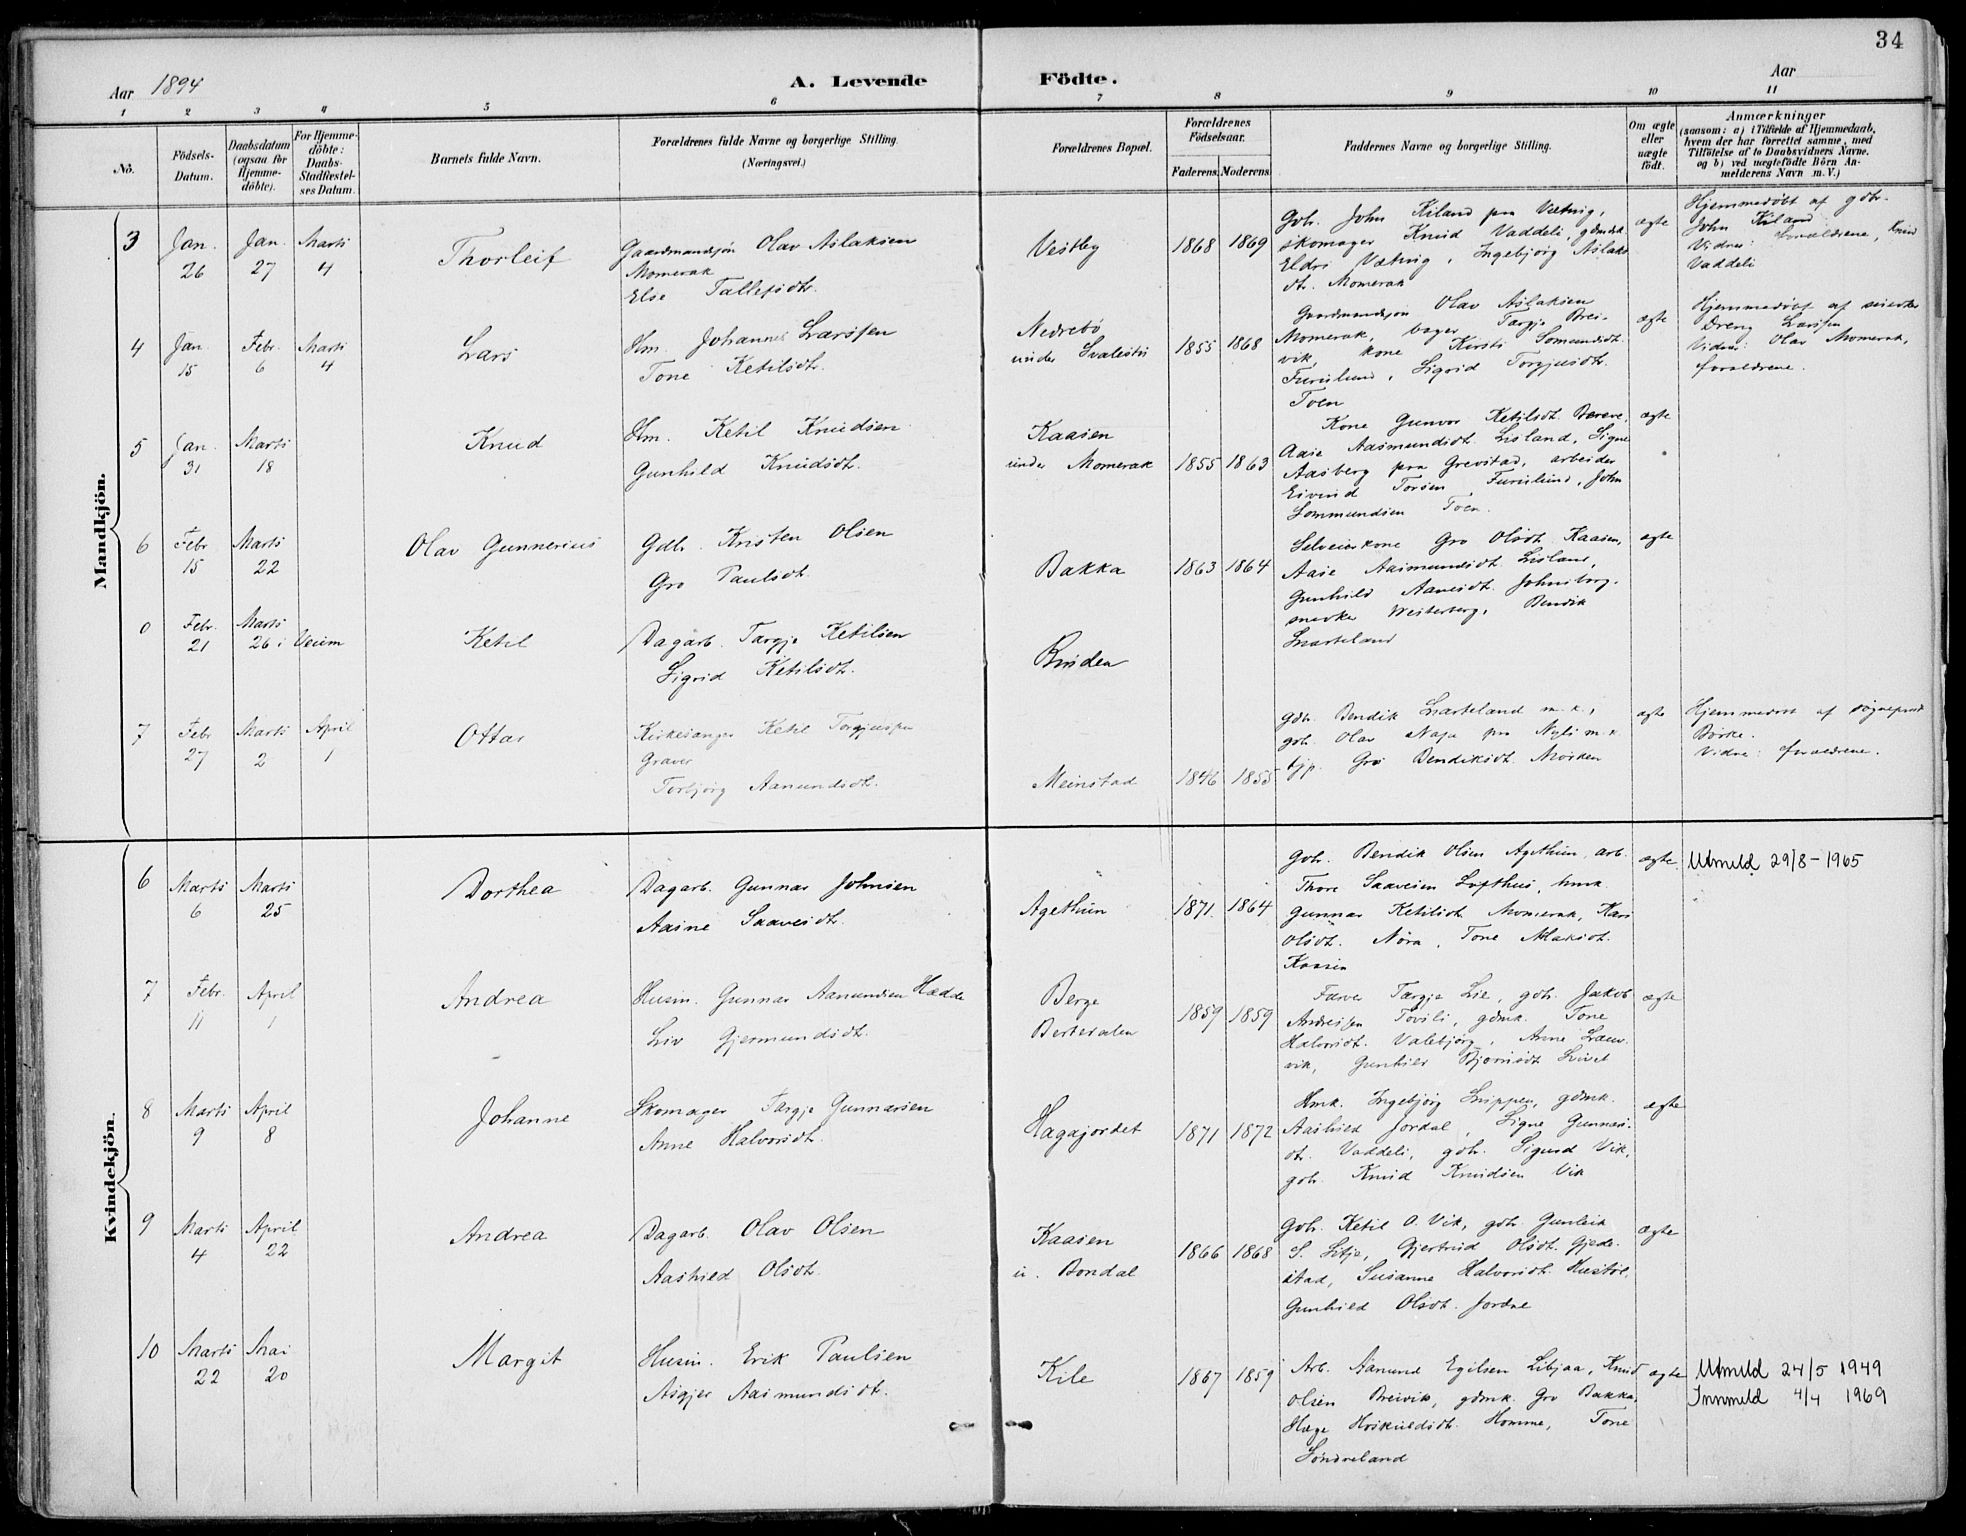 34
Aar 1894
A. Levende Födte.
Aar
1 2 3 4 5 6 7 8 9 10 11
No.
Födsels-Datum.
Daabsdatum (ogsaa for Hjemme-döbte).
For Hjemme-döbte: Daabs-Stadfæstel-ses Datum.
Barnets fulde Navn.
Forældrenes fulde Navne og borgerlige Stilling.
(Næringsvei.)
Forældrenes Bopæl.
Forældrenes Födselsaar.
Faderens. Moderens.
Faddernes Navne og borgerlige Stilling.
Om ægte eller uægte födt.
Anmærkninger
(saasom: a) i Tilfælde af Hjemmedaab,
hvem der har forrettet samme, med
Tilföielse af to Daabsvidners Navne,
og b) ved uægtefödte Börn An-
melderens Navn m. V.)
Mandkjön.
3 Jan. 26 Jan. 27 Marts 4 Thorleif
Gaardmandssön Olav Aslaksen
Momerak
Else Tallefsdtr.
Vestby 1868 1869
Gbr. John Kiland paa Vætnig,
skomager Knud Vaddeli, gdmdsk.
Eldri Vætnig, Ingebjörg Aslaks
dtr. Momerak
ægte
Hjemmedöbt af gdbr.
John Kiland
Vidner: Forældrene, Knud
Vaddeli
4 Jan. 15 Febr. 6 Marts 4 Lars
Hm. Johannes Larssen
Tone Ketilsdtr.
Nedrebö
under Svalestu 1855 1868
Gaardmandssön Olav Aslaksen
Momerak, bager Targje Brei-
vik, kone Kirsti Somundsdt.
Furulund, Sigrid Torgjusdtr.
Toen
ægte
Hjemmedöbt af
Dreng Larssen
Vidner: Olav Momerak,
forældrene.
5 Jan. 31 Marts 18 Knud
Hm. Ketil Knudsen
Gunhild Knudsdtr.
Kaasen
under Momerak 1855 1863
Kone Gunvor Ketilsdt.
Aase Aasmundsdt. Lisland, Signe
Aasberg paa Grevstad, arbeider
Eivind Torsen Furulund, John
Sommundsen Toen.
ægte
6 Febr. 15 Marts 22 Olav Gunnerius
Gdbr. Kristen Olsen
Gro Paulsdt.
Bakka 1863 1864
Selveierkone Gro Olsdt. Kaasen,
Aase Aasmundsdt. Lisland,
Gunhild Aanesdt. Johnsborg.
snedker Westerberg, Bendik
Lærteland
ægte
0 Febr. 21 Marts 26 i Veum Ketil
Dagarb. Targje Ketilsen
Sigrid Ketilsdt.
Bruden
7 Febr 27 Marts 2 April 1 Ottar
Kirkesanger Ketil Torgjussen
Graver
Torbjörg Aanundsdt.
Meinstad 1846 1855
Gdb. Bendik Lærteland m. k.,
gbr. Olav Næss paa m. k.
tjp. Gro Bendiksdt. Moiden
ægte
Hjemmedöbt af sogneprest
Börke.
Vidne: forældrene.
Kvindekjön.
6 Marts 6 Marts 25 Dorthea
Dagarb. Gunnar Johnsen
Aasne Saavesdt.
Agethun 1871 1864
Gbr. Bendik Olsen Agethun, arb.
Thore Saavesen Lofthus, hmk.
Gunnar Ketilsdt. Momerak, Kari
Olsdt. Nöra, Tone Aslaksdt.
Kaasen
ægte
Utmeld 29/8 - 1965
7 Febr. 11 April 1 Andrea
Husm. Gunnar Aanundsen Hædde
Liv Gjermundsdt.
Berge
Berterdalen 1859 1859
Farver Targje Lie, gbr. Jakob
Andreasen Tovsli, gdmk. Tone
Halvorsdt. Valebjörg, Anne Lauv
vik, Gunhild Bjornsdt.
ægte
8 Marts 9 April 8 Johanne
Skomager Targje Gunnarsen
Anne Halvorsdt.
Hagajordet 1871 1872
Hmk. Ingebjörg Snippen, gdmk.
Aashild Jordal, Signe Gunnars-
dt. Vaddeli, gbr. Sigurd Vik,
gbr. Knud Knudsen Vik
ægte
9 Marts 4 April 22 Andrea
Dagarb. Olav Olsen
Aashild Olsdt.
Kaasen
u. Bondal 1866 1868
Gbr. Ketil O. Vik, gbr. Gunleik
S. Litje, Gjertrud Olsdt. Gjede-
stad, Susanne Halvorsdt. Hustöl,
Gunhild Olsdt. Jordne
ægte
10 Marts 22 Mai 20 Margit
Husm. Erik Paulsen
Asgjer Aasmundsdt.
Kile 1867 1859
Arb. Aanund Egilsen Libjaa, Knud
Olsen Breivik, gdmk. Gro Bakka,
Hæge Höskuldsdt. Homme, Tone
Söndreland
ægte
Utmeld 24/5 1949
Innmeld 4/4 1969